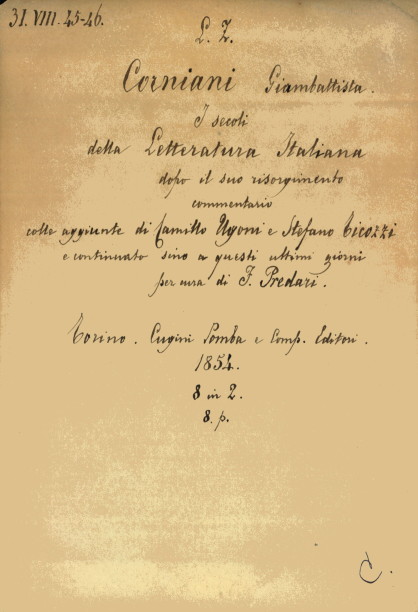 31. VIII. 45-46.
L. Z.
Corniani Giambattista.
I secoli
della Letteratura Italiana
dopo il suo risorgimento
commentario
colle aggiunte di Camillo Ugoni e Stefano Ticozzi
e continuato sino a questi ultimi giorni
per cura di F. Predari.
Torino. Cugini Pomba e Comp. Editori.
1854.
8 in 2.
8. p.
C.